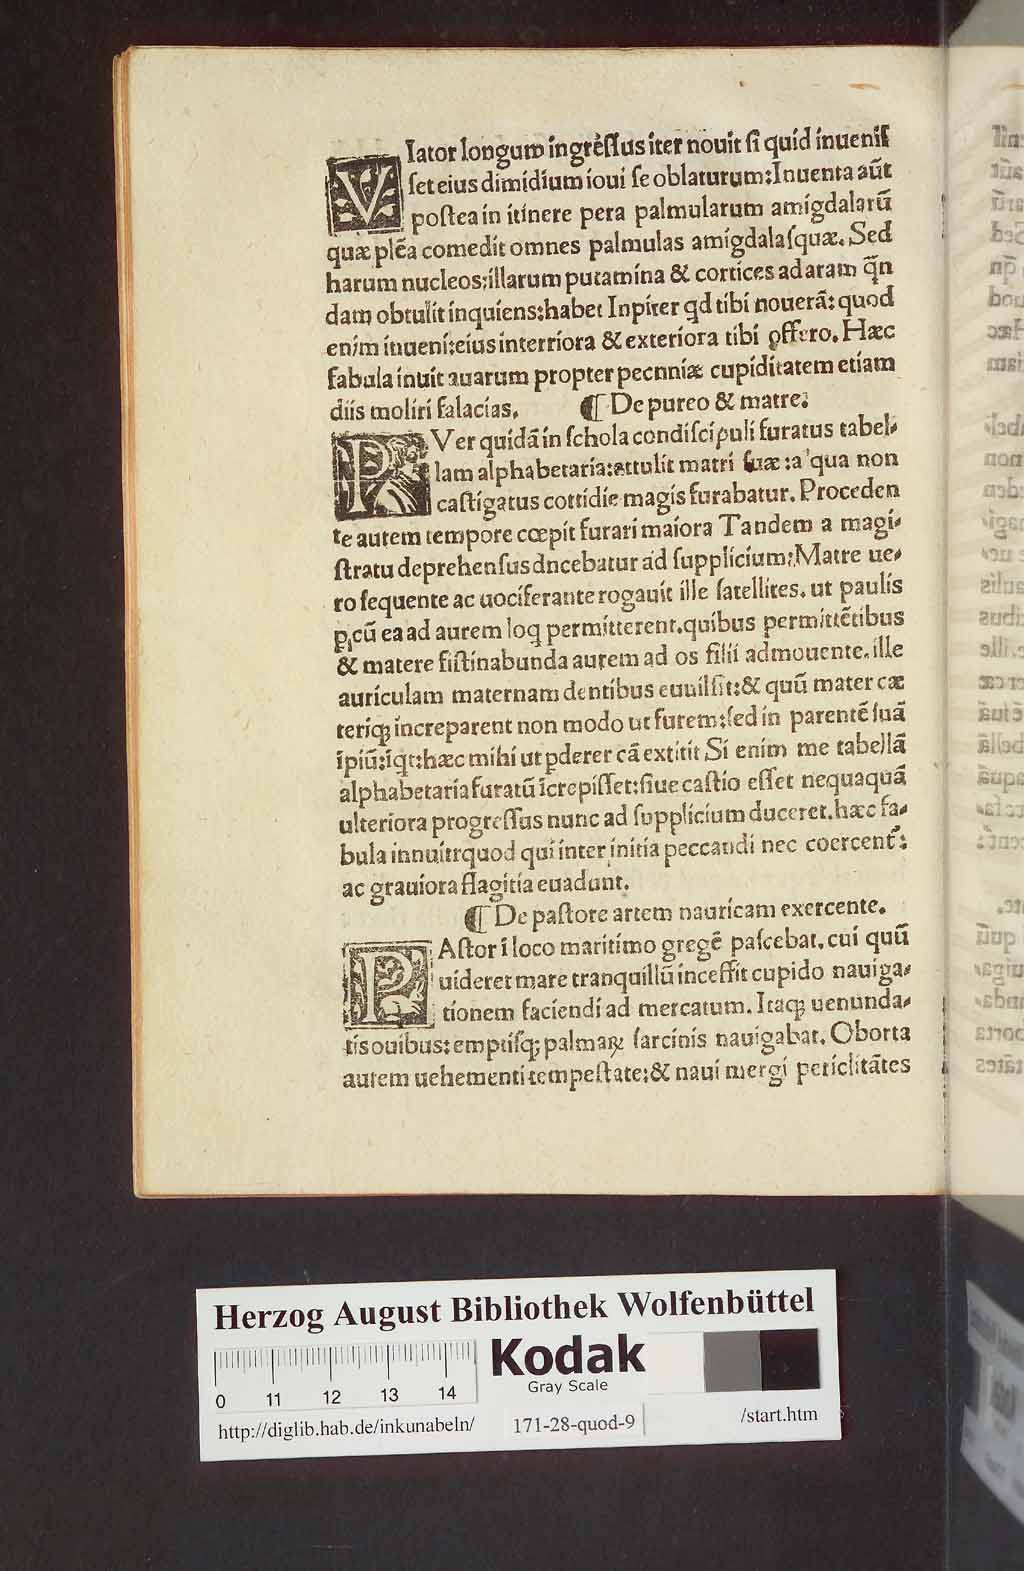 VIator longum ingrēſſus iter nouit ſi quid inueniſ
ſet eius dimidium ioui ſe oblaturum: Inuenta aūt
poſtea in itinere pera palmularum amigdalarū
quæ plēa comedit omnes palmulas amigdalaſquæ. Sed
harum nucleos: illarum putamina & cortices ad aram q̄n
dam obtulit inquiens: habet Inpiter qd tibi nouerā: quod
enim inueni: eius interriora & exteriora tibi ꝓffero. Hæc
fabula inuit auarum propter pecnniæ cupiditatem etiam
diis moliri falacias. ¶ De pureo & matre.
PVer quidā in ſchola condiſcipuli furatus tabel⸗
lam alphabetaria: attulit matri ſuæ: a qua non
caſtigatus cottidie magis furabatur. Proceden
te autem tempore cœpit furari maiora Tandem a magi⸗
ſtratu deprehenſus dncebatur ad ſupplicium: Matre ue⸗
ro ſequente ac uociferante rogauit ille ſatellites. ut paulis
p̱ cū ea ad aurem loq permitterent. quibus permittētibus
& matere fiſtinabunda aurem ad os filii admouente. ille
auriculam maternam dentibus euuilſit: & quū mater cæ
teriqꝫ increparent non modo ut furem: ſed in parentē ſuā
īpiū: īqt: hæc mihi ut pderer cā extitit Si enim me tabellā
alphabetaria furatū īcrepiſſet: ſiue caſtio eſſet nequaquā
ulteriora progreſſus nunc ad ſupplicium duceret. hæc fa⸗
bula innuitrquod qui inter initia peccandi nec coercent̄:
ac grauiora flagitia euadunt.
¶ De paſtore artem nauticam exercente.
PAſtor ī loco maritimo gregē paſcebat. cui quū
uideret mare tranquillū inceſſit cupido nauiga⸗
tionem faciendi ad mercatum. Itaqꝫ uenunda⸗
tis ouibus: emptiſqꝫ palmaꝝ ſarcinis nauigabat. Oborta
autem uehementi tempeſtate: & naui mergi periclitātes
Herzog August Bibliothek Wolfenbüttel
Kodak
Gray Scale
0 11 12 13 14
http://diglib.hab.de/inkunabeln/ 171-28-quod-9 /start.htm